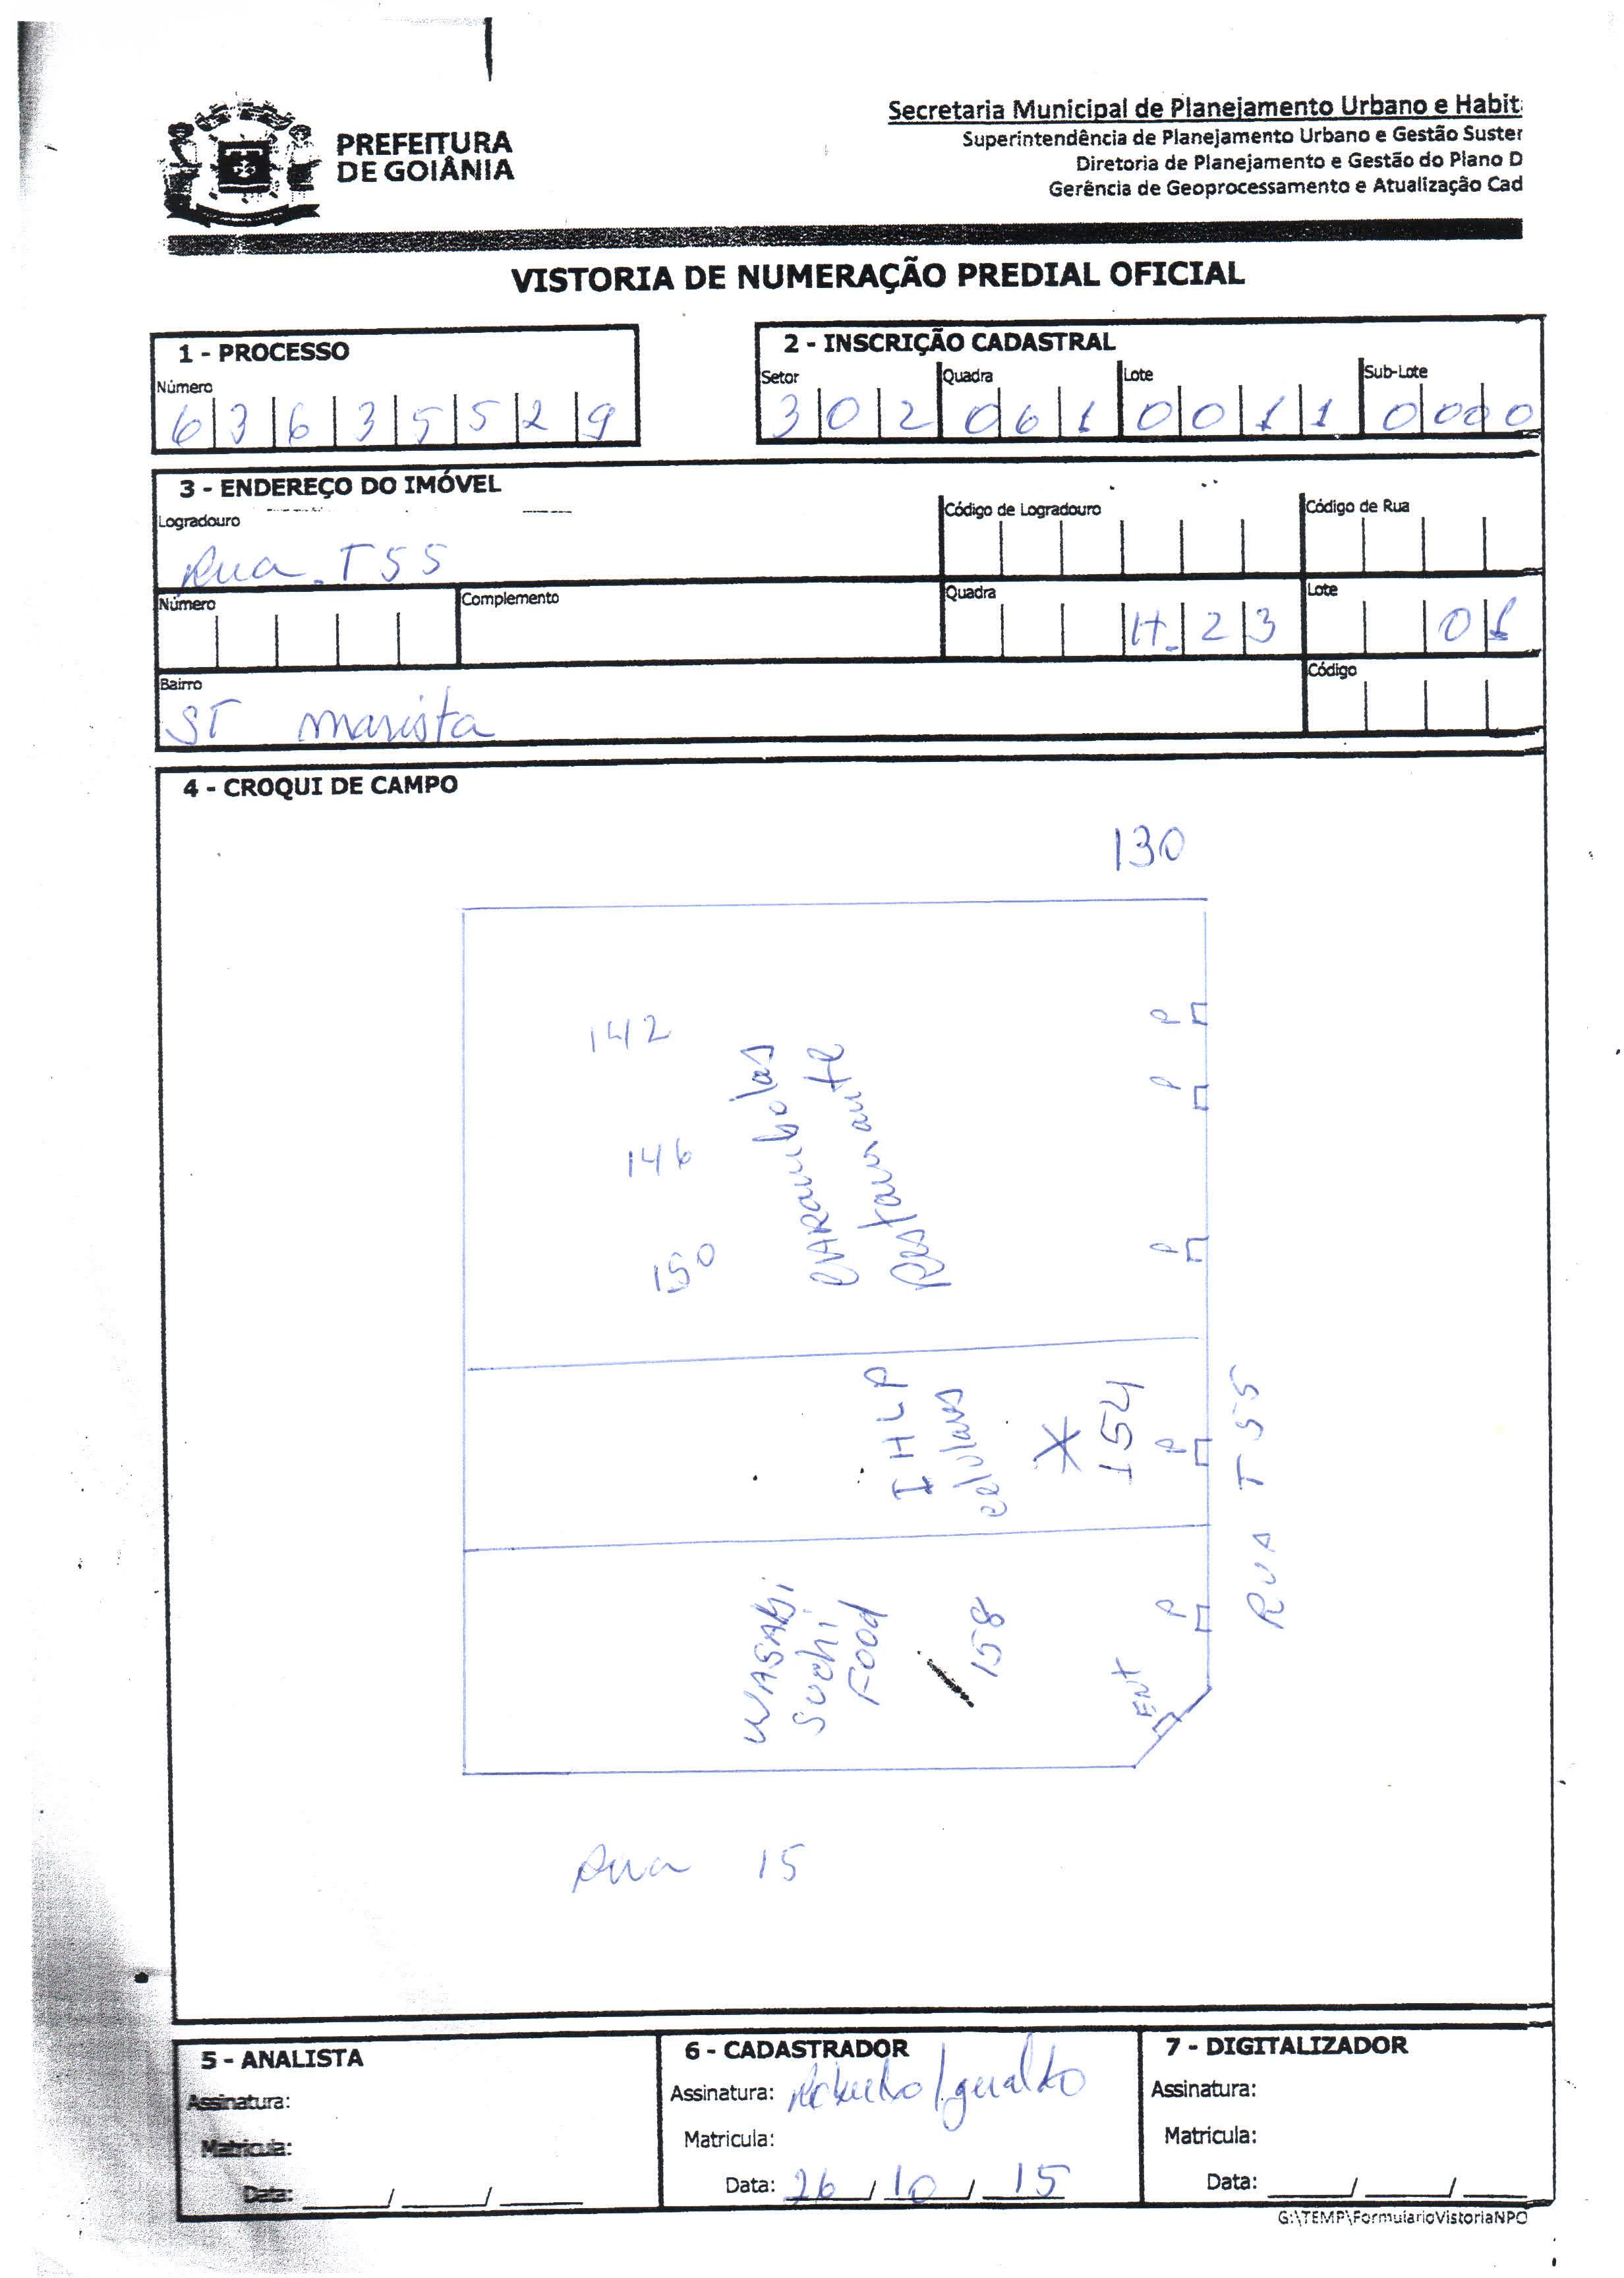 PREFEITURA
DE GOIÂNIA
Secretaria Municipal de Planejamento Urbano e Habit
Superintendência de Planejamento Urbano e Gestão Suster
Diretoria de Planejamento e Gestão do Plano D
Gerência de Geoprocessamento e Atualização Cad
VISTORIA DE NUMERAÇÃO PREDIAL OFICIAL
1 - PROCESSO
Número
6 3 6 3 5 5 2 9
2 - INSCRIÇÃO CADASTRAL
Setor Quadra Lote Sub-Lote
3 0 2 0 6 1 0 0 1 1 0 0 0 0
3 - ENDEREÇO DO IMÓVEL
Logradouro Código de Logradouro Código de Rua
Rua. T55
Número Complemento Quadra Lote
H. 2 3 0 1
Bairro Código
ST marista
4 - CROQUI DE CAMPO
130
142
146
150
CARambolas
Restaurante
P
P
P
I HLP
celulares
154
P
RUA T 55
WASABi
Suchi
Food
158
P
ENT
Rua 15
5 - ANALISTA
Assinatura:
Matricula:
Data: ____/____/____
6 - CADASTRADOR
Assinatura:
Matricula:
Data: 26/10/15
7 - DIGITALIZADOR
Assinatura:
Matricula:
Data: ____/____/____
G:\TEMP\FormularioVistoriaNPO